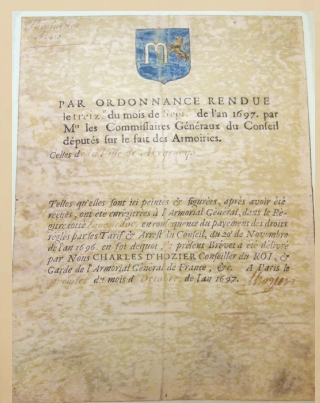 M
PAR ORDONNANCE RENDUE
le du mois de de l'an 1697. par
Mrs les Commissaires Généraux du Conseil
députés sur le fait des Armoiries.
Celles d
Telles qu'elles sont ici peintes & figurées, après avoir été
reçues, ont été enregîtrées à l'Armorial Général, dans le Re-
gître cotté en conséquence du payement des droits
réglés par les Tarif & Arrest du Conseil, du 20e de Novembre
de l'an 1696. en foi dequoi, le présent Brévet a été délivré
par Nous CHARLES D'HOZIER Conseiller du ROI, &
Garde de l'Armorial Général de France, &c. A Paris le
du mois d de l'an 1697.